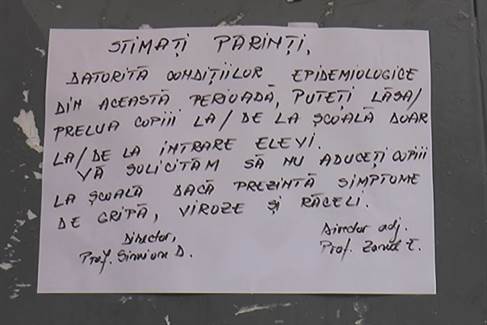 STIMAȚI PĂRINȚI,
DATORITĂ CONDIȚIILOR EPIDEMIOLOGICE
DIN ACEASTĂ PERIOADĂ, PUTEȚI LĂSA/
PRELUA COPIII LA/DE LA ȘCOALĂ DOAR
LA/DE LA INTRARE ELEVI.
VĂ SOLICITĂM SĂ NU ADUCEȚI COPIII
LA ȘCOALĂ DACĂ PREZINTĂ SIMPTOME
DE GRIPĂ, VIROZE ȘI RĂCELI.
Director, Director adj.
Prof. D. Prof. Zanid E.